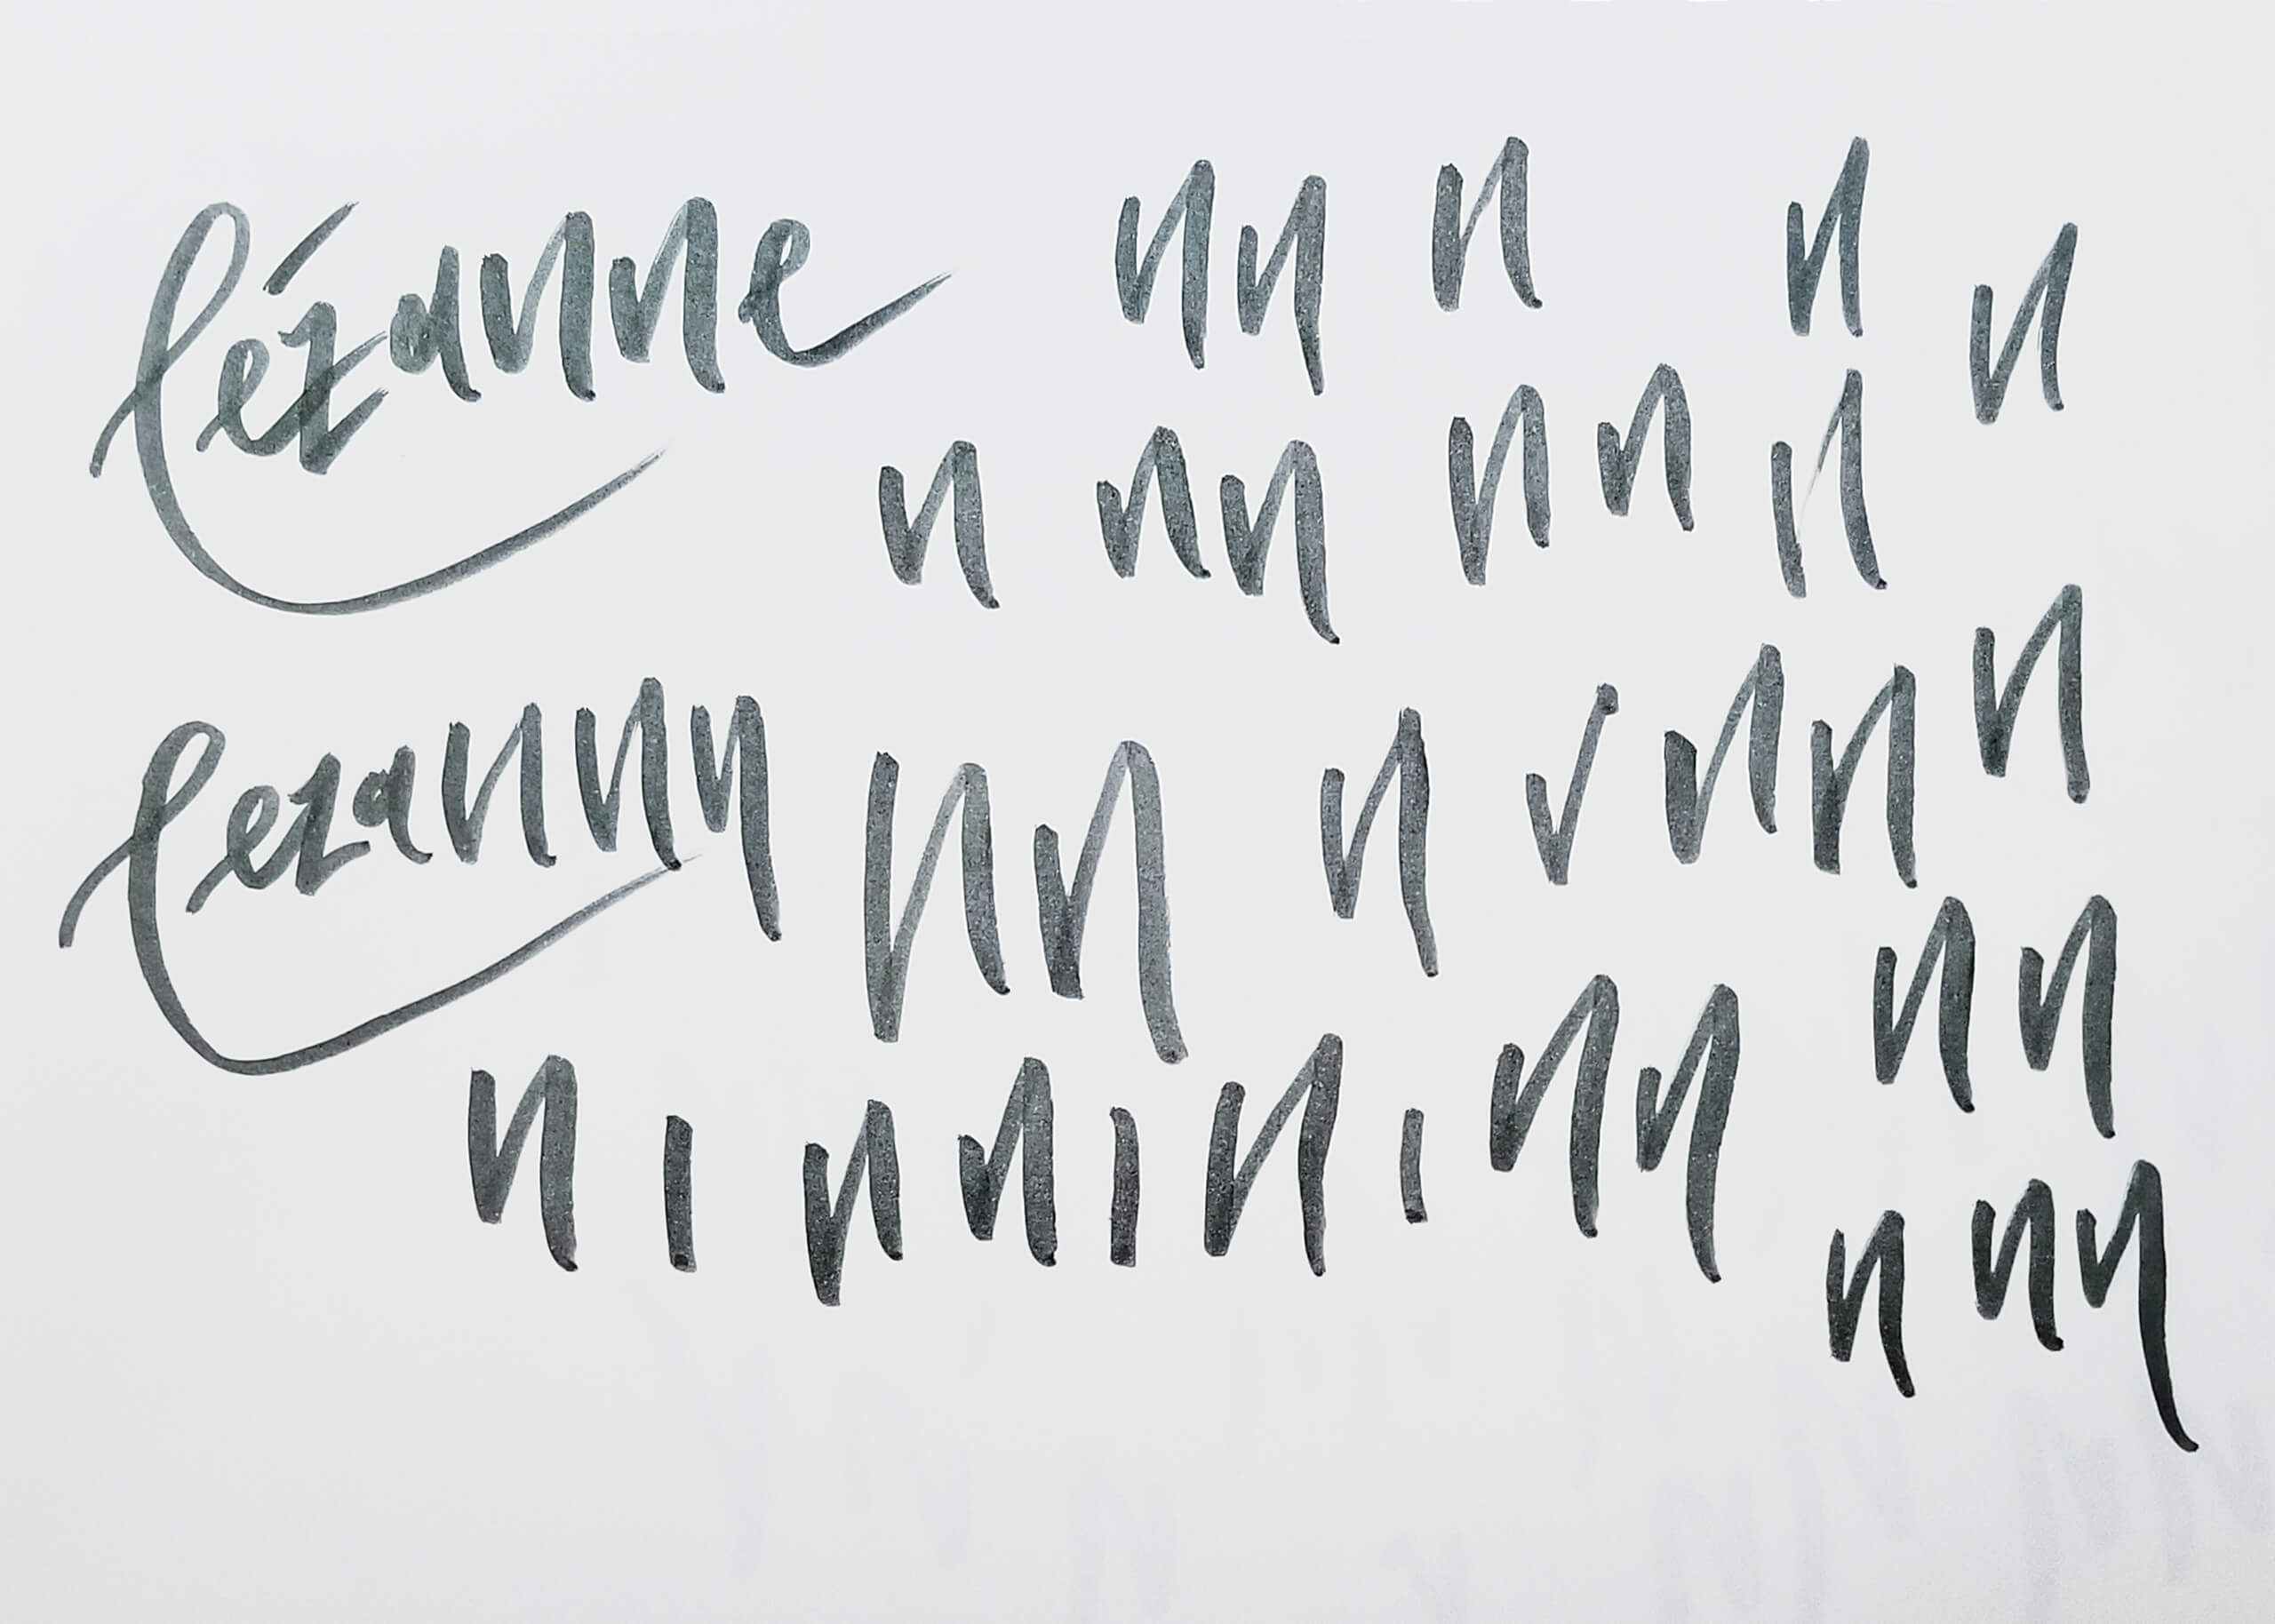 Cézanne nn n n n
n nn nn n n
Cezannn nn n nn n
nn
n ı nn ı n ı nn
n nn n